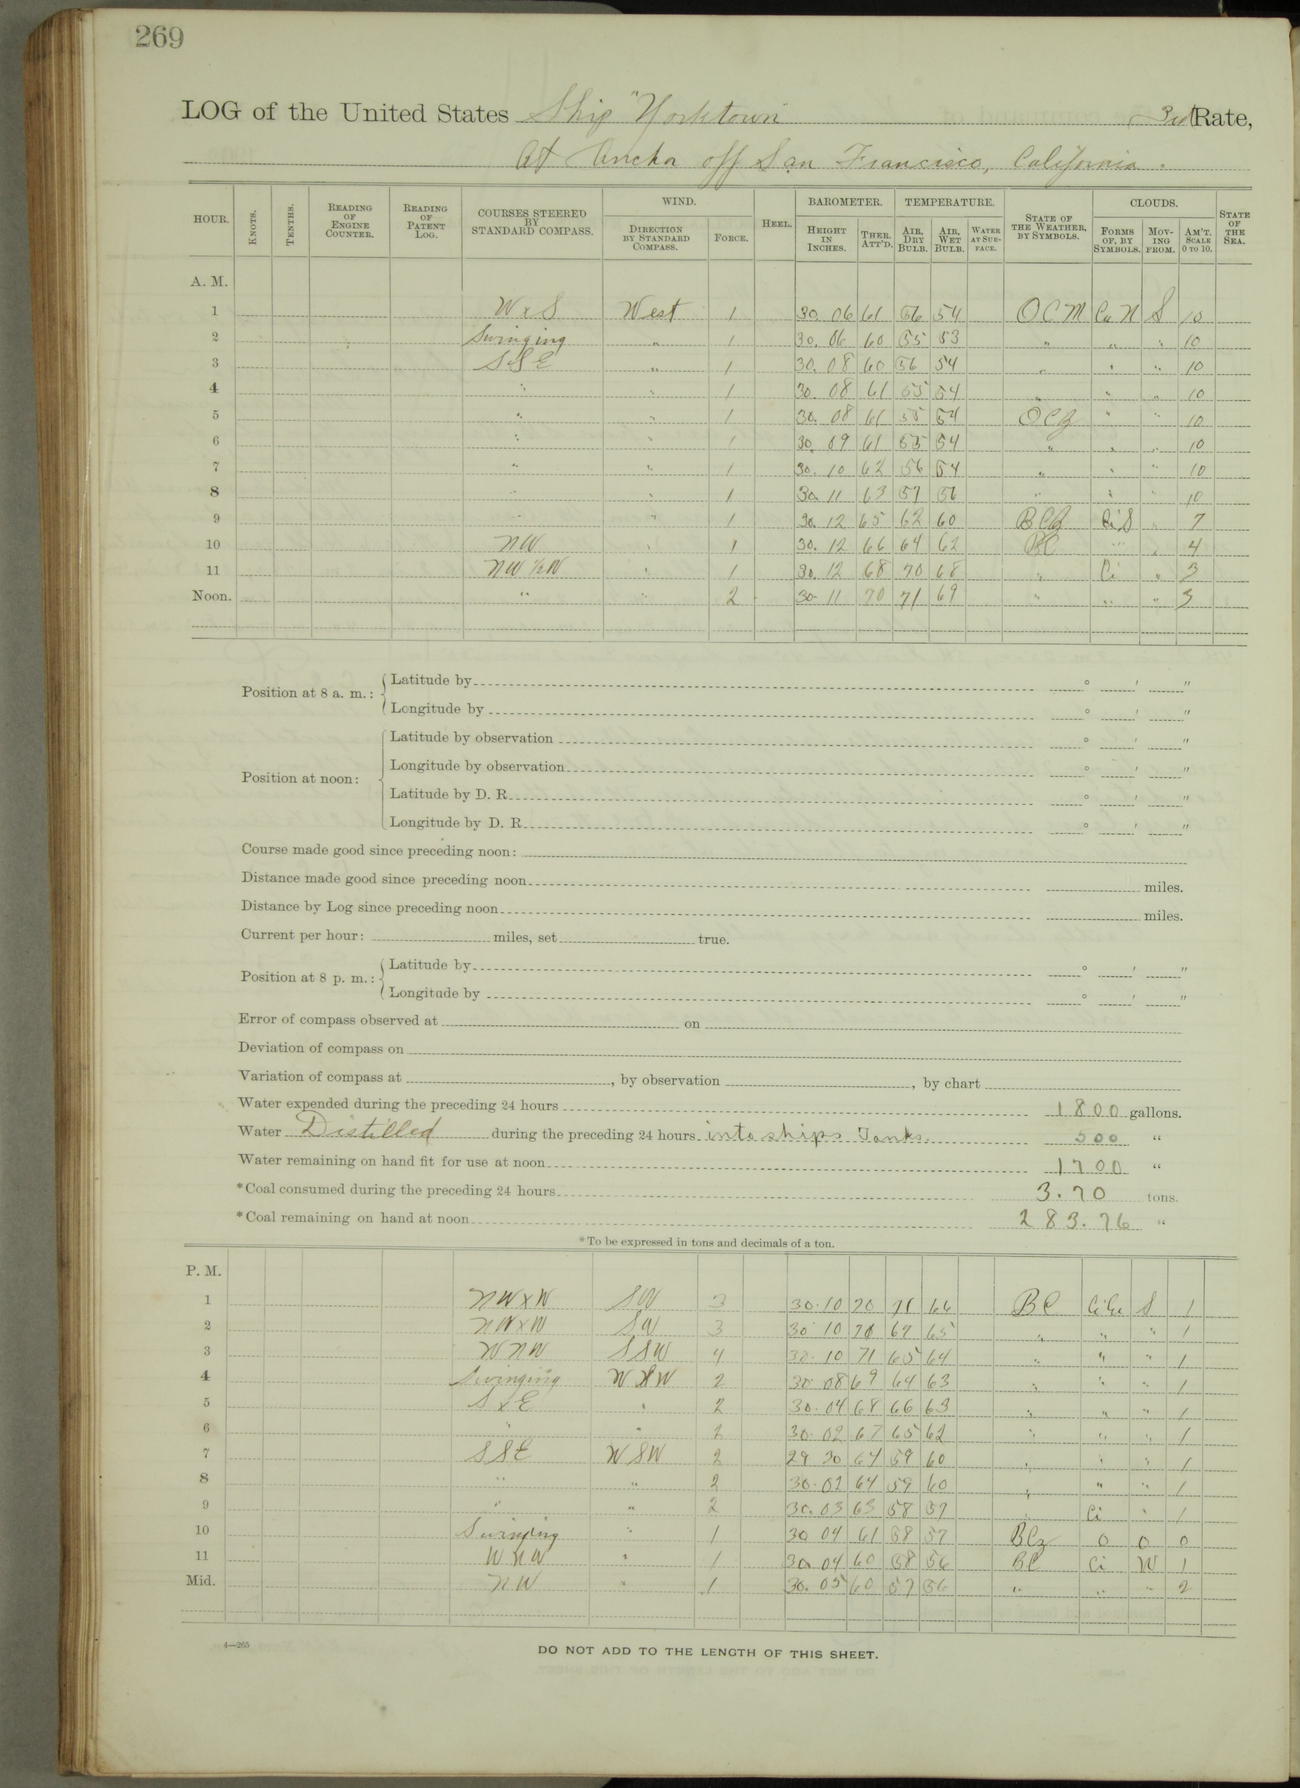 269
LOG of the United States Ship "Yorktown" 3rd Rate,
At Anchor off San Francisco, California.
HOUR. KNOTS. TENTHS. READING OF ENGINE COUNTER. READING OF PATENT LOG. COURSES STEERED BY STANDARD COMPASS. WIND. DIRECTION BY STANDARD COMPASS. FORCE. HEEL. BAROMETER. HEIGHT IN INCHES. THER. ATT'D. TEMPERATURE. AIR, DRY BULB. AIR, WET BULB. WATER AT SURFACE. STATE OF THE WEATHER, BY SYMBOLS. CLOUDS. FORMS OF, BY SYMBOLS. MOVING FROM. AM'T. SCALE 0 TO 10. STATE OF THE SEA.
A. M.
1 W x S West 1 30.06 61 56 54 OCM Cu N S 10
2 Swinging " 1 30.06 60 55 53 " " " 10
3 SSE " 1 30.08 60 56 54 " " " 10
4 " " 1 30.08 61 55 54 " " " 10
5 " " 1 30.08 61 55 54 OCZ " " 10
6 " " 1 30.09 61 55 54 " " " 10
7 " " 1 30.10 62 56 54 " " " 10
8 " " 1 30.11 63 57 56 " " " 10
9 " " 1 30.12 65 62 60 BCZ Ci S " 7
10 NW " 1 30.12 66 64 62 BC " " 4
11 NW ½ W " 1 30.12 68 70 68 " Ci " 3
Noon. " " 2 30.11 70 71 69 " " " 3
Position at 8 a. m.: Latitude by ° ' "
Longitude by ° ' "
Position at noon: Latitude by observation ° ' "
Longitude by observation ° ' "
Latitude by D. R. ° ' "
Longitude by D. R. ° ' "
Course made good since preceding noon:
Distance made good since preceding noon miles.
Distance by Log since preceding noon miles.
Current per hour: miles, set true.
Position at 8 p. m.: Latitude by ° ' "
Longitude by ° ' "
Error of compass observed at on
Deviation of compass on
Variation of compass at , by observation , by chart
Water expended during the preceding 24 hours 1800 gallons.
Water Distilled during the preceding 24 hours into ships Tanks. 500 "
Water remaining on hand fit for use at noon 1700 "
*Coal consumed during the preceding 24 hours 3.70 tons.
*Coal remaining on hand at noon 283.76 "
*To be expressed in tons and decimals of a ton.
P. M.
1 NW x W SW 3 30.10 70 71 66 BC Ci Cu S 1
2 NW x W SW 3 30.10 70 67 65 " " " 1
3 WNW SSW 4 30.10 71 65 64 " " " 1
4 Swinging WSW 2 30.08 69 64 63 " " " 1
5 S x E " 2 30.04 68 66 63 " " " 1
6 " " 2 30.02 67 65 62 " " " 1
7 SSE WSW 2 29 30 64 59 60 " " " 1
8 " " 2 30.02 64 59 60 " " " 1
9 " " 2 30.03 63 58 57 " Ci " 1
10 Swinging " 1 30 04 61 58 57 BCz 0 0 0
11 WNW " 1 30 04 60 58 56 BC Ci W 1
Mid. NW " 1 30.05 60 57 56 " " " 2
4—265
DO NOT ADD TO THE LENGTH OF THIS SHEET.